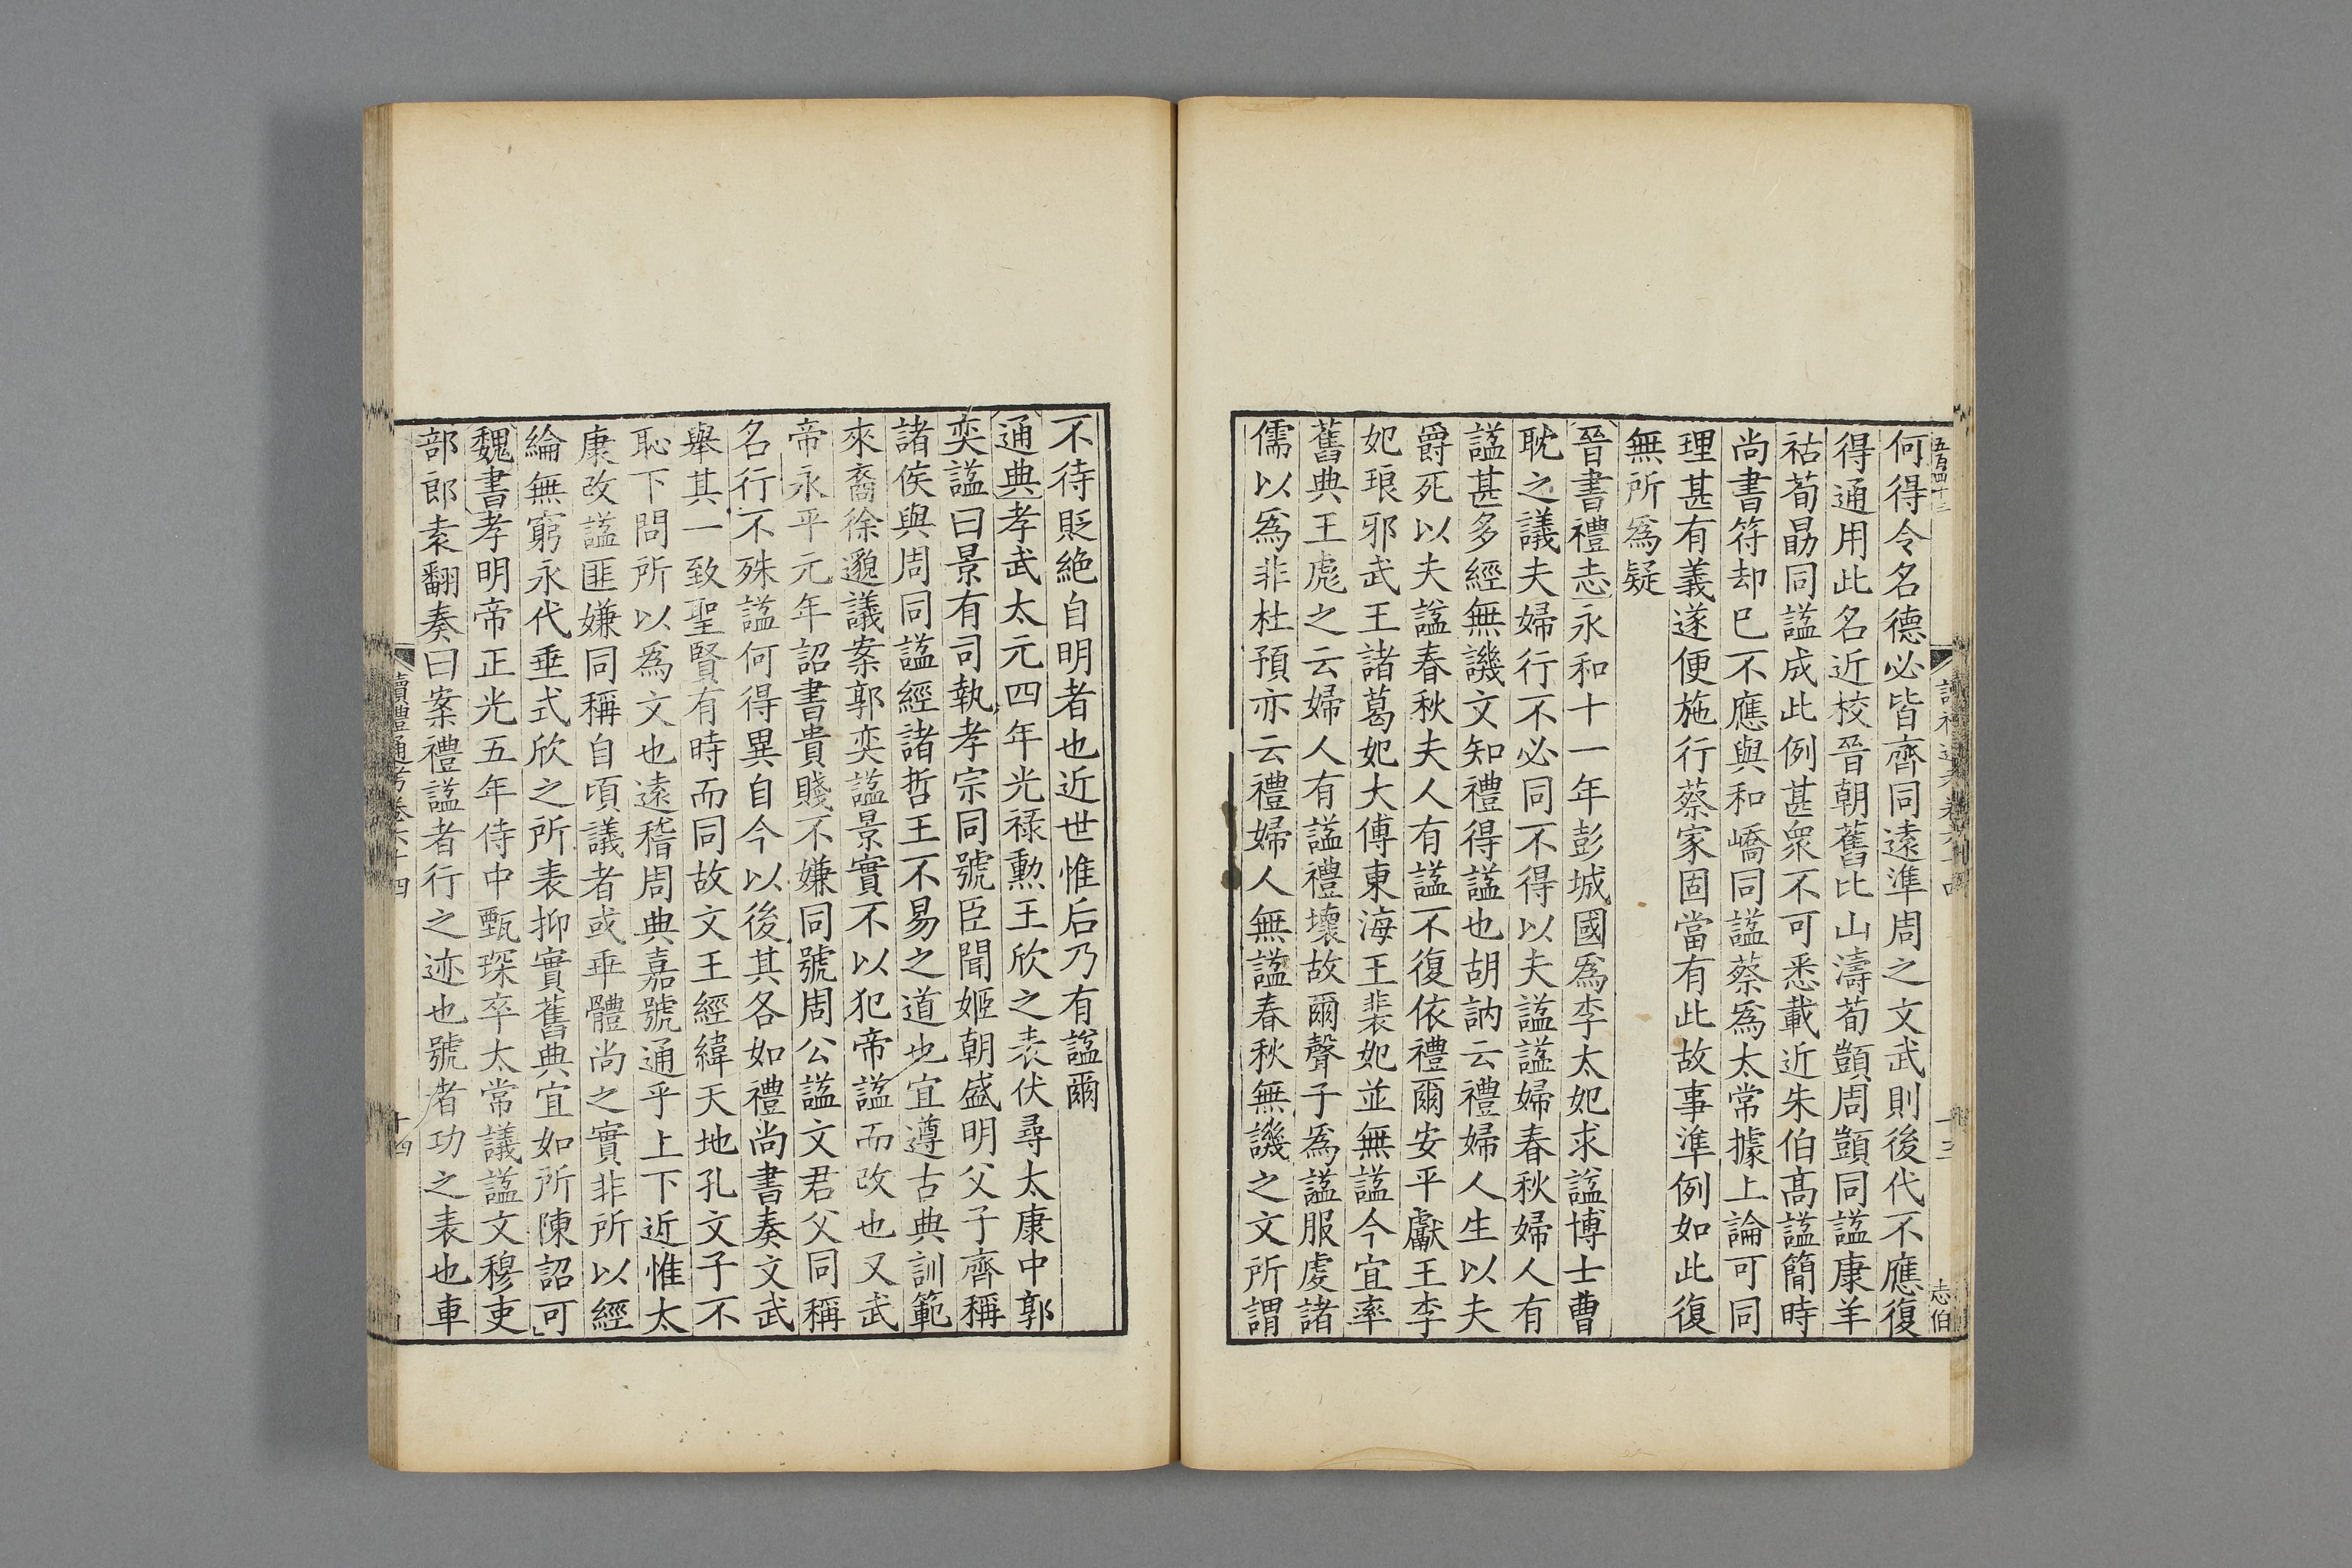 何得令名德必皆齊同遠準周之文武則後代不應復
得通用此名近校晉朝舊比山濤荀顗周顗同諡康羊
祜荀勗同諡成此例甚衆不可悉載近朱伯高諡簡時
尚書符却巳不應與和嶠同諡蔡爲太常據上論可同
理甚有義遂便施行蔡家固當有此故事準例如此復
無所爲疑
晉書禮志永和十一年彭城國爲李太妃求諡博士曹
耽之議夫婦行不必同不得以夫諡諡婦春秋婦人有
諡甚多經無譏文知禮得諡也胡訥云禮婦人生以夫
爵死以夫諡春秋夫人有諡不復依禮爾安平獻王李
妃琅邪武王諸葛妃大傅東海王裴妃並無諡今宜率
舊典王彪之云婦人有諡禮壞故爾聲子爲諡服虔諸
儒以爲非杜預亦云禮婦人無諡春秋無譏之文所謂
不待貶絶自明者也近世惟后乃有諡爾
通典孝武太元四年光祿勲王欣之表伏尋太康中郭
奕諡曰景有司執孝宗同號臣聞姬朝盛明父子齊稱
諸侯與周同諡經諸哲王不易之道也宜遵古典訓範
來裔徐邈議案郭奕諡景實不以犯帝諡而改也又武
帝永平元年詔書貴賤不嫌同號周公諡文君父同稱
名行不殊諡何得異自今以後其各如禮尚書奏文武
舉其一致聖賢有時而同故文王經緯天地孔文子不
恥下問所以爲文也遠稽周典嘉號通乎上下近惟太
康改諡匪嫌同稱自頃議者或乖體尚之實非所以經
綸無窮永代垂式欣之所表抑實舊典宜如所陳詔可
魏書孝明帝正光五年侍中甄琛卒太常議諡文穆吏
部郎袁翻奏曰案禮諡者行之迹也號者功之表也車
讀禮通考卷六十四
十四